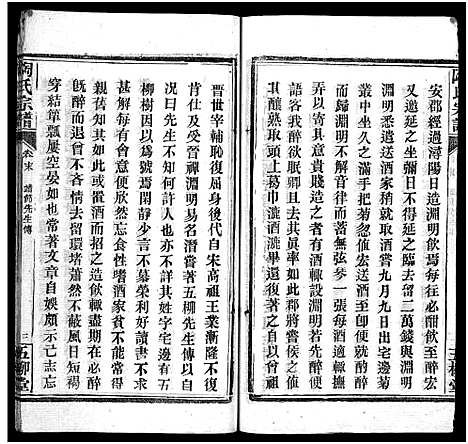 安郡經過潯陽日造淵明飲焉每往必酣飲至醉宏
又邀延之坐彌日不得延之臨去留二萬錢與淵明
淵明悉遣送酒家稍就取酒嘗九月九日出宅邊菊
叢中坐久之滿手把菊忽值宏送酒至卽便就酌醉
而歸淵明不解音律而蓄無弦琴一張每酒適輒撫
弄以寄其意貴賤造之者有酒輒設淵明若先醉便
語客我醉欲眠卿可去其眞率如此郡將常候之值
其釀熟取頭上葛巾漉酒漉畢還復著之自以曾祖
晋世宰輔恥復屈身後代自宋高祖王業漸隆不復
肯仕及受晉禪淵明易名潛嘗著五柳先生傳以自
况曰先生不知何許人也亦不詳其姓字宅邊有五
柳樹因以爲號焉閑靜少言不慕榮利好讀書不求
甚解每有會意便欣然忘食性嗜酒家貧不能常得
親舊知其如此或置酒而招之造飲輒盡期在必醉
旣醉而退曾不吝情去留環堵蕭然不蔽風日短褐
穿結簞瓢屢空晏如也常著文章自娛頗示己志忘
陶氏宗譜
卷末 諸節先生傳
三 五柳堂